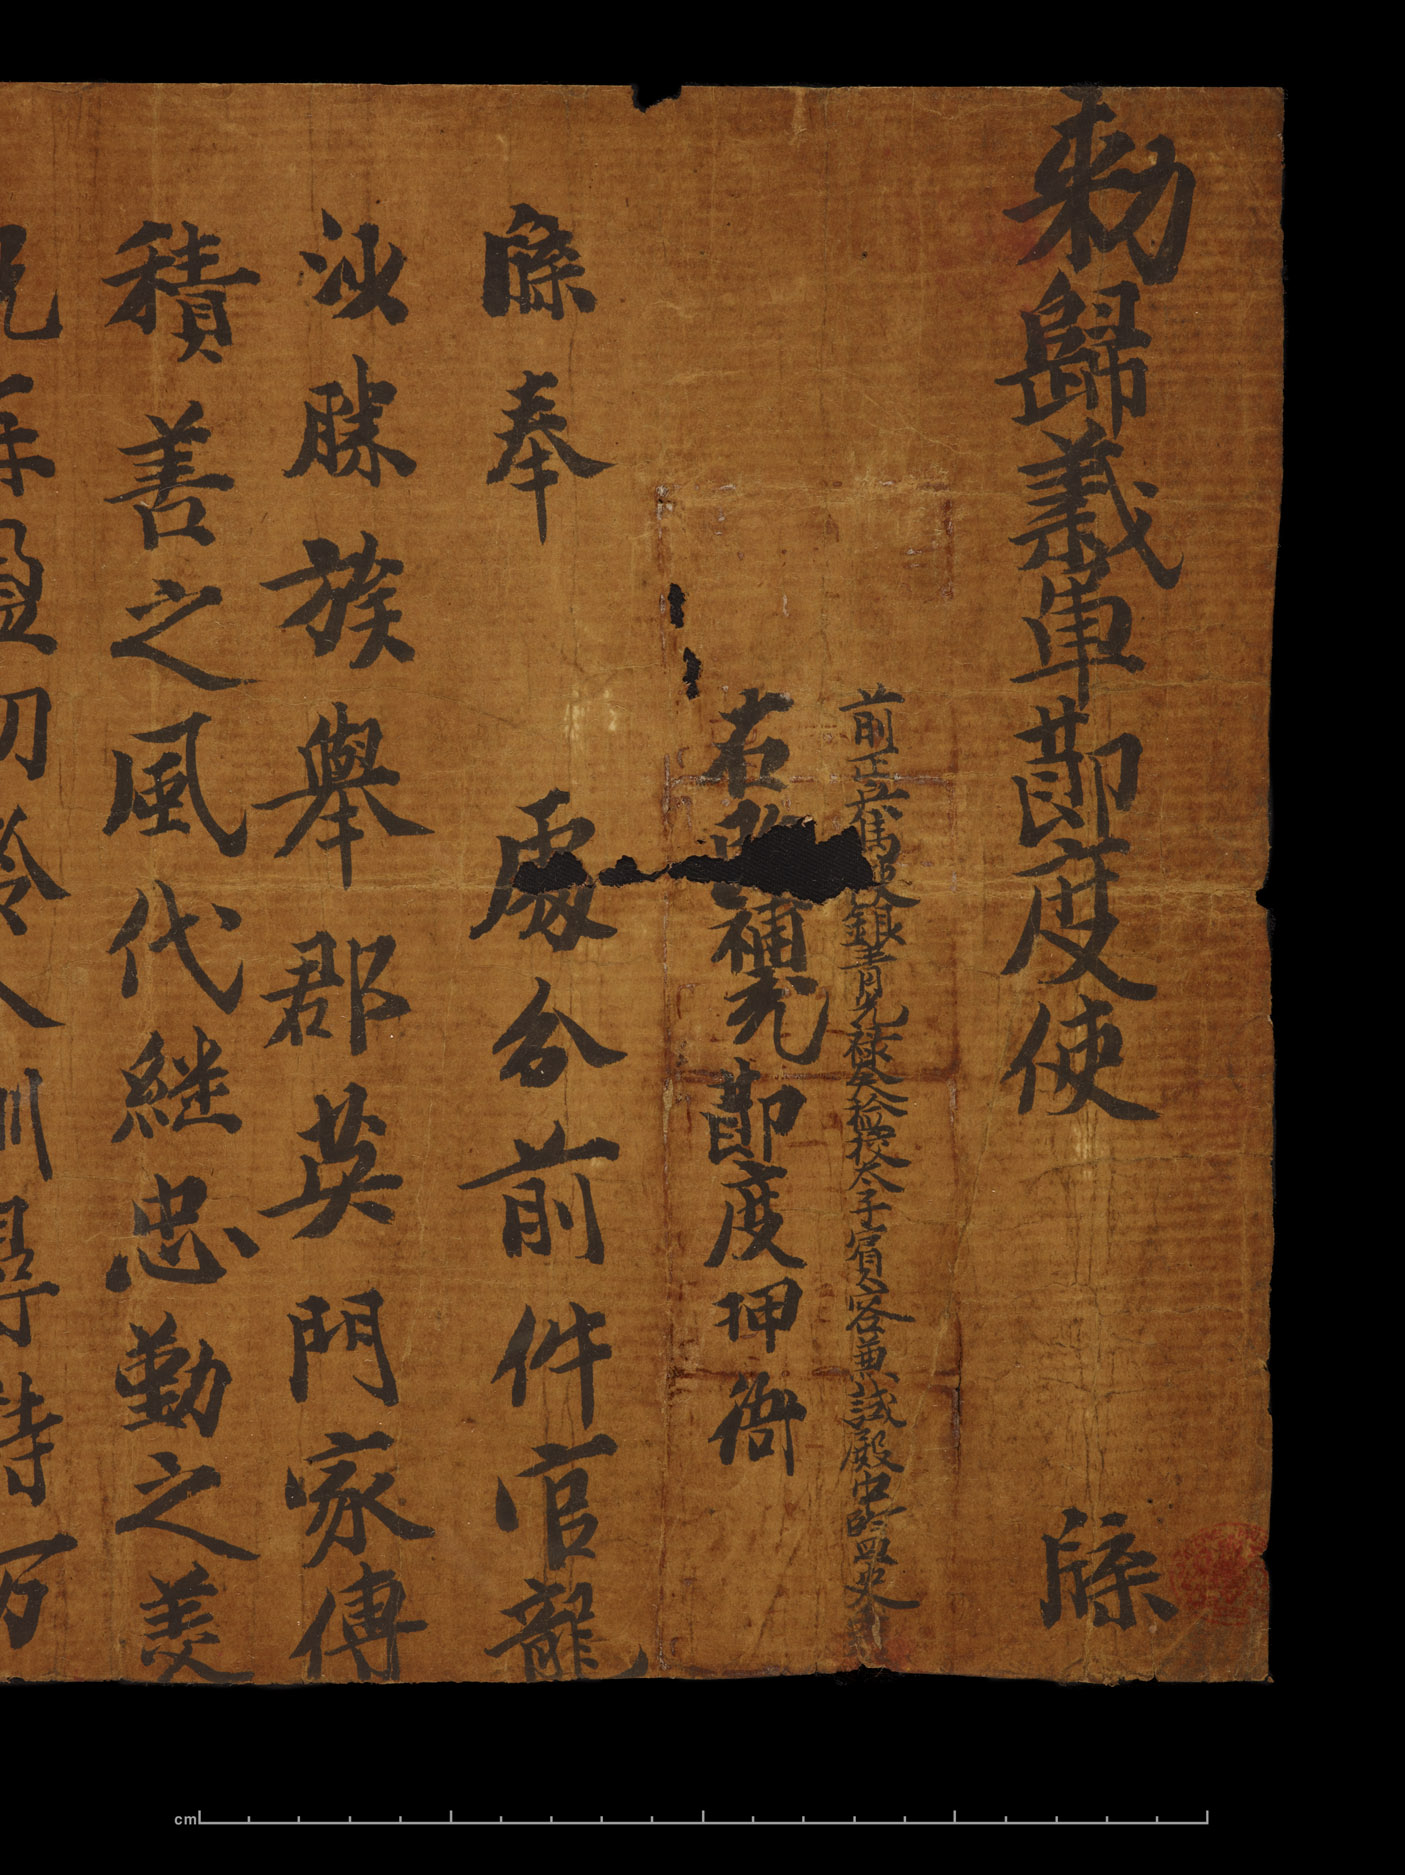 勅歸義軍節度使 牒
前正兵馬使銀青光祿大夫檢校太子賓客兼試殿中侍御史
右改補充節度押衙
牒奉 處分前件官龍
沙勝族舉郡英門家傳
積善之風代継忠勤之美
年盈切齡訓尋特万
cm